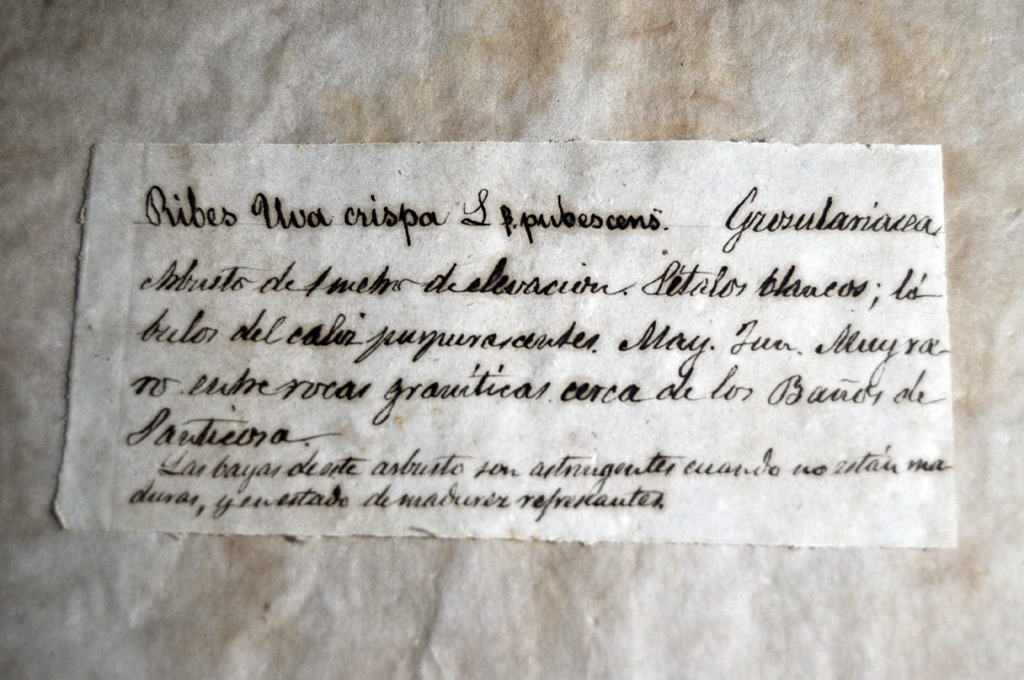 Ribes Uva crispa L β. pubescens. Grosulariacea
Arbusto de 1 metro de elevacion. Pétalos blancos; ló-
bulos del caliz purpurascentes. May. Jun. Muy ra-
ro entre rocas graníticas cerca de los Baños de
Panticosa.
Las bayas de este arbusto son astringentes cuando no están ma-
duras, y en estado de madurez refrescantes.